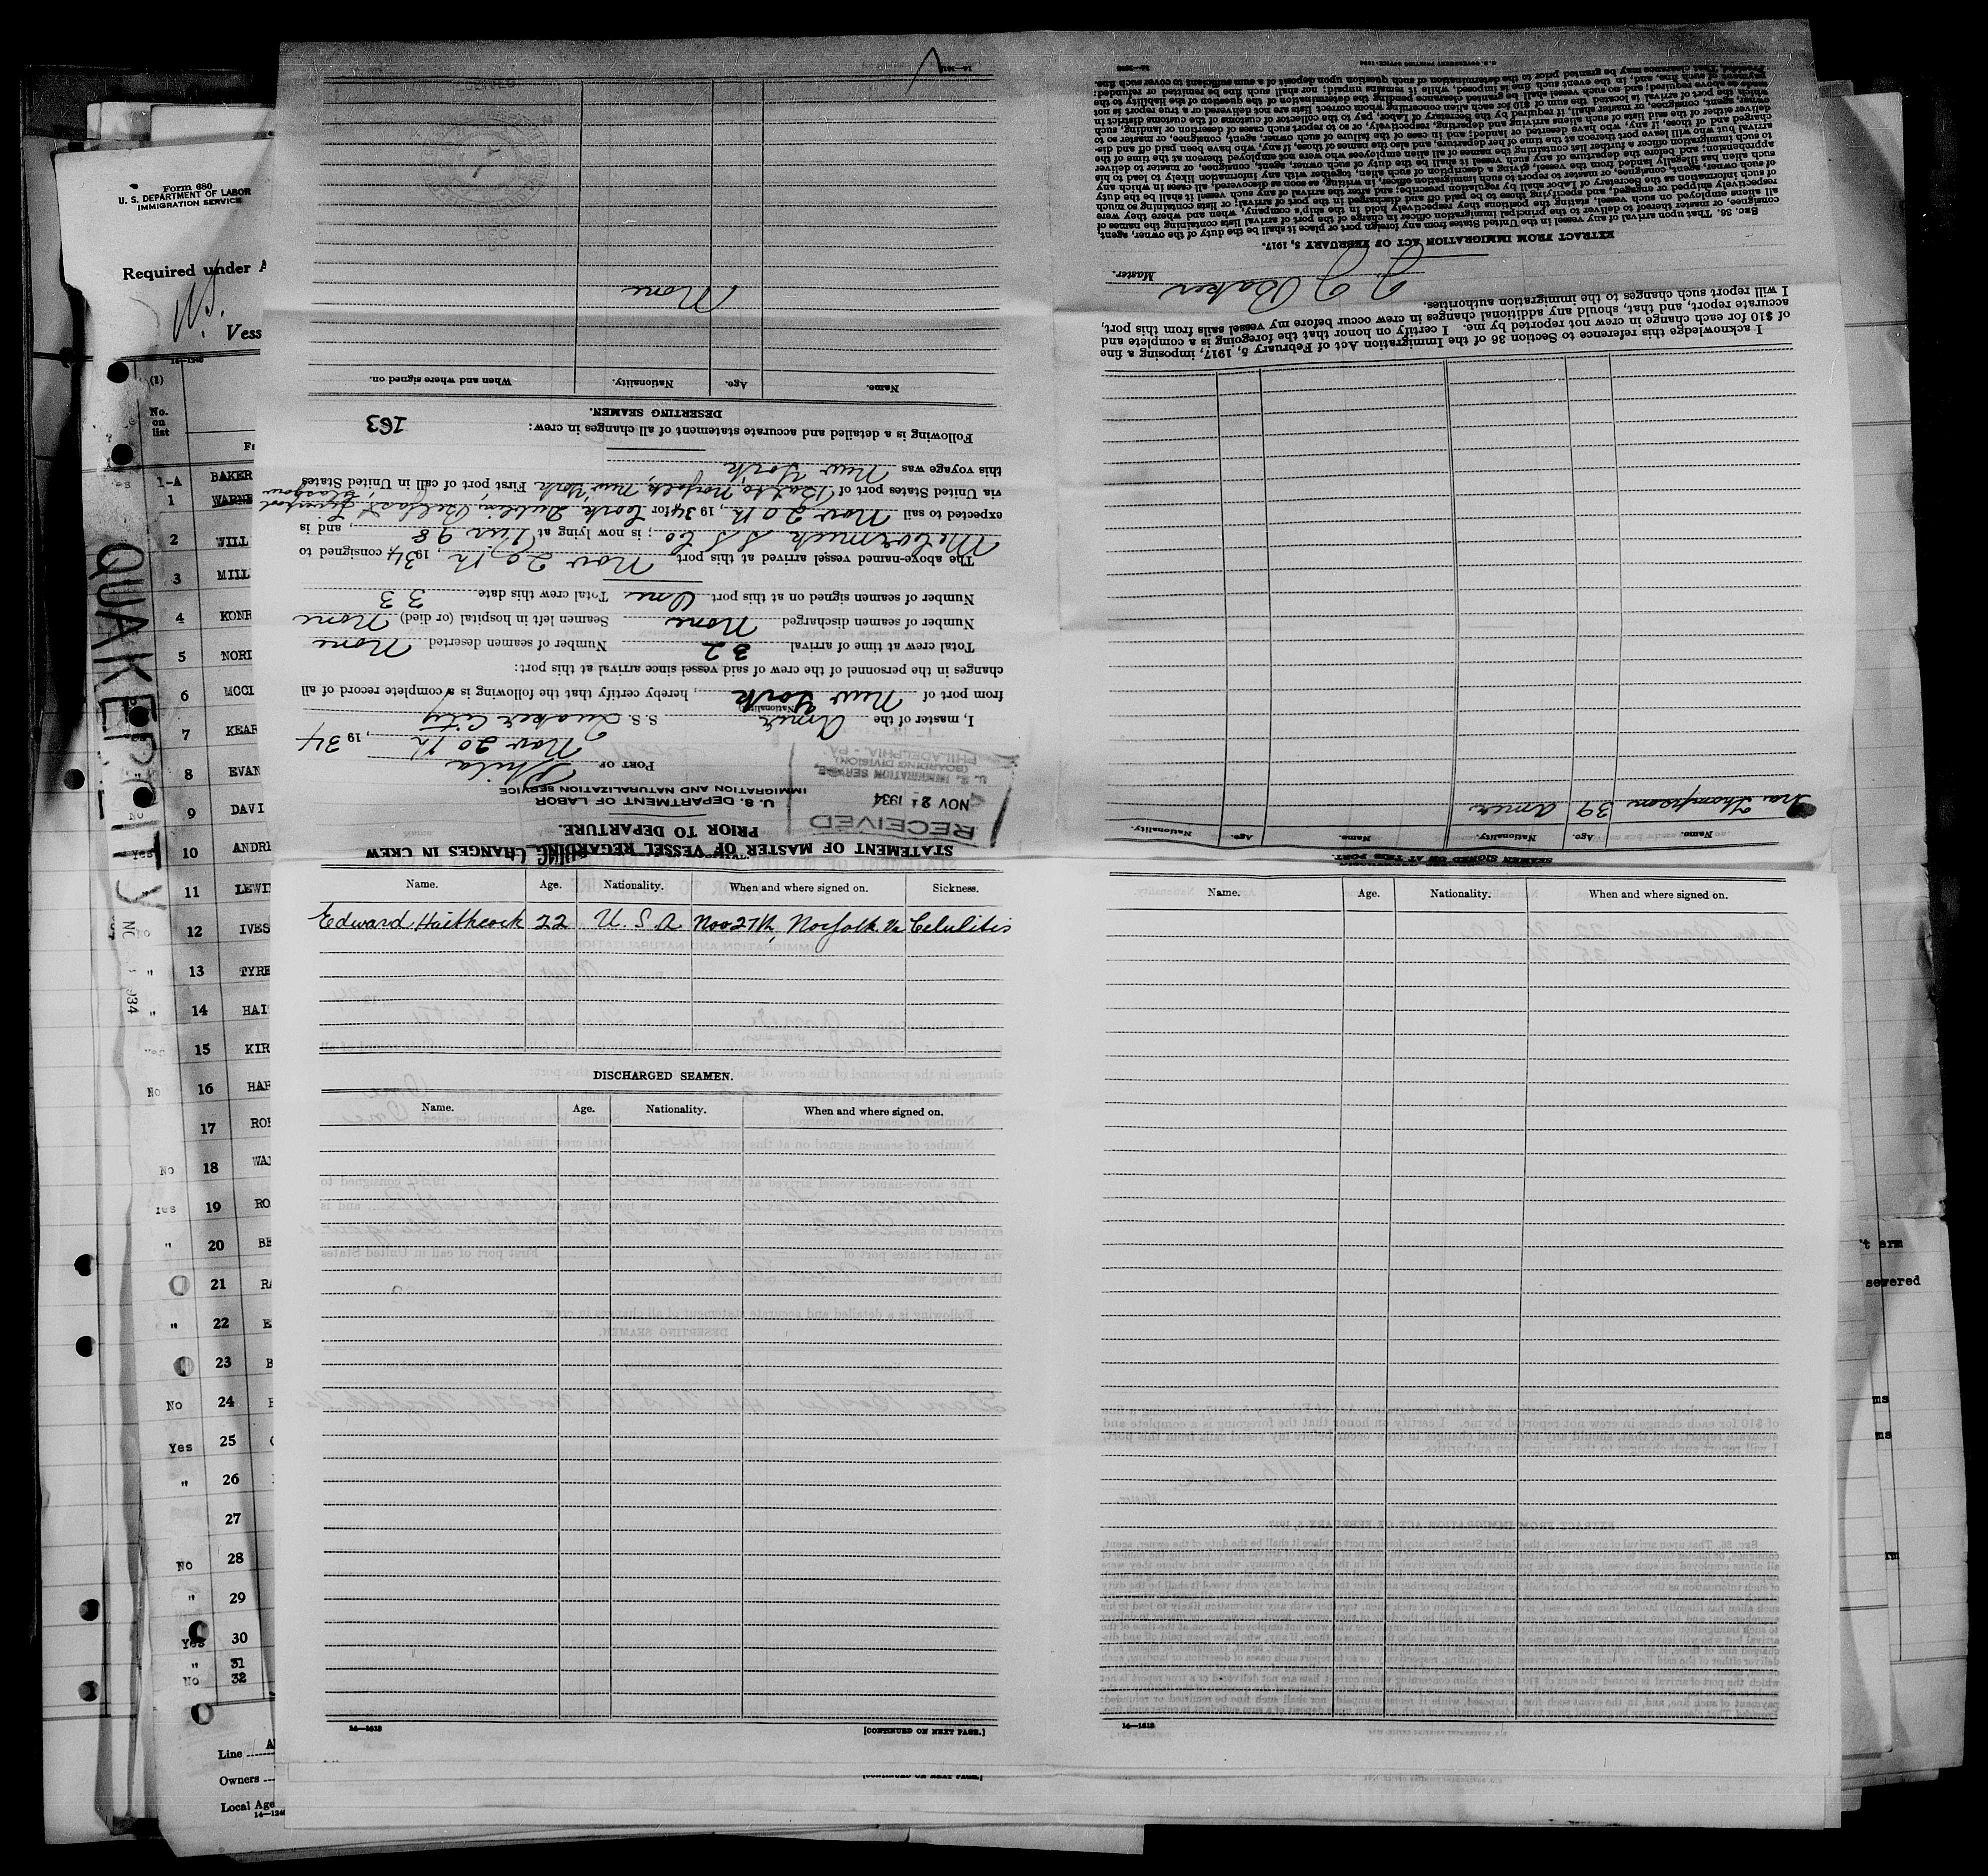 Form 680
U. S. DEPARTMENT OF LABOR
IMMIGRATION SERVICE
Required under A
Vess
14-1240
(1)
No.
on
list
1-A BAKER
1 WARNE
2 WILL
3 MILL
4 KONR
5 NORI
6 MCCI
7 KEAR
8 EVAN
9 DAVI
Yes 10 ANDRE
11 LEWI
12 IVES
" 13 TYRE
" 14 HAI
15 KIR
No 16 HAR
17 ROB
No 18 WA
Yes 19 RO
" 20 BE
21 RA
" 22 E
23 B
No 24
Yes 25
" 26
27
No 28
" 29
Yes 30
" 31
No 32
Line
Owners
Local Age
QUAKER CITY
STATEMENT OF MASTER OF VESSEL REGARDING CHANGES IN CREW
PRIOR TO DEPARTURE.
U. S. DEPARTMENT OF LABOR
IMMIGRATION AND NATURALIZATION SERVICE
RECEIVED
NOV 21 1934
U. S. IMMIGRATION SERVICE
(BOARDING DIVISION)
PHILADELPHIA - PA.
PORT OF Phila
Nov 20th, 1934
I, master of the Amer S. S. Quaker City
(Nationality)
from port of New York, hereby certify that the following is a complete record of all
changes in the personnel of the crew of said vessel since arrival at this port:
Total crew at time of arrival 32 Number of seamen deserted None
Number of seamen discharged None Seamen left in hospital (or died) None
Number of seamen signed on at this port One Total crew this date 33
The above-named vessel arrived at this port Nov 20th, 1934 consigned to
McCormick S S Co; is now lying at Pier 98, and is
expected to sail Nov 20th, 1934 for Cork, Dublin, Belfast, Liverpool, Glasgow
via United States port of Balto, Norfolk, New York First port of call in United States
this voyage was New York
Following is a detailed and accurate statement of all changes in crew: 163
DESERTING SEAMEN.
Name. Age. Nationality. When and where signed on.
None
14-1613
SEAMEN SIGNED ON AT THIS PORT.
Name. Age. Nationality. Name. Age. Nationality.
Ira Thompson 39 Amer
I acknowledge this reference to Section 36 of the Immigration Act of February 5, 1917, imposing a fine
of $10 for each change in crew not reported by me. I certify on honor that the foregoing is a complete and
accurate report, and that, should any additional changes in crew occur before my vessel sails from this port,
I will report such changes to the immigration authorities.
Baker
Master.
EXTRACT FROM IMMIGRATION ACT OF FEBRUARY 5, 1917.
SEC. 36. That upon arrival of any vessel in the United States from any foreign port or place it shall be the duty of the owner, agent,
consignee, or master thereof to deliver to the principal immigration officer in charge of the port of arrival lists containing the names of
all aliens employed on such vessel, stating the positions they respectively hold in the ship's company, when and where they were
respectively shipped or engaged, and specifying those to be paid off and discharged in the port of arrival; or lists containing so much
of such information as the Secretary of Labor shall by regulation prescribe; and after the arrival of any such vessel it shall be the duty
of such owner, agent, consignee, or master to report to such immigration officer, in writing, as soon as discovered, all cases in which any
such alien has illegally landed from the vessel, giving a description of such alien, together with any information likely to lead to his
apprehension; and before the departure of any such vessel it shall be the duty of such owner, agent, consignee, or master to deliver
to such immigration officer a further list containing the names of all alien employees who were not employed thereon at the time of the
arrival but who will leave port thereon at the time of her departure, and also the names of those, if any, who have been paid off and dis-
charged and of those, if any, who have deserted or landed; and in case of the failure of such owner, agent, consignee, or master so to
deliver either of the said lists of such aliens arriving and departing, respectively, or so to report such cases of desertion or landing, such
owner, agent, consignee, or master shall, if required by the Secretary of Labor, pay to the collector of customs of the customs district in
which the port of arrival is located the sum of $10 for each alien concerning whom correct lists are not delivered or a true report is not
made as above required; and no such vessel shall be granted clearance pending the determination of the question of the liability to the
payment of such fine, and, in the event such fine is imposed, while it remains unpaid; nor shall such fine be remitted or refunded:
Provided, That clearance may be granted prior to the determination of such question upon deposit of a sum sufficient to cover such fine.
U. S. GOVERNMENT PRINTING OFFICE
Name. Age. Nationality. When and where signed on. Sickness.
Edward Haithcock 22 U. S. A. Nov 27th, Norfolk Va Celulitis
DISCHARGED SEAMEN.
Name. Age. Nationality. When and where signed on.
14-1613 [CONTINUED ON NEXT PAGE.]
[CONTINUED ON NEXT PAGE.]
Name. Age. Nationality. When and where signed on.
14-1613
't arm
severed
ms
ms
rm